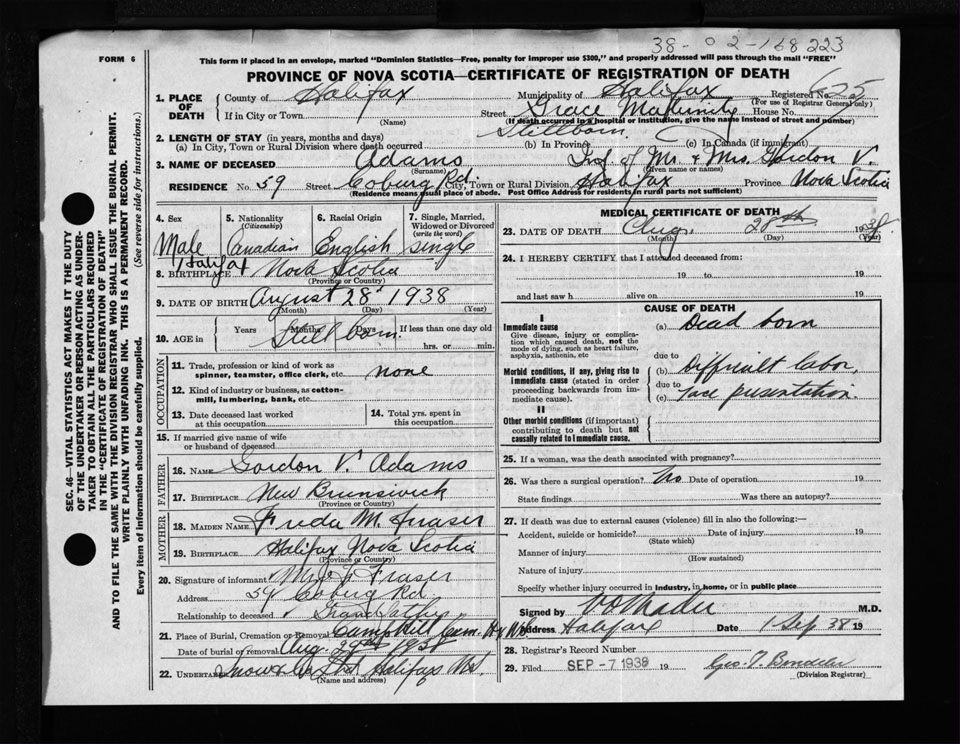 38-02-168223
FORM 6
This form if placed in an envelope, marked "Dominion Statistics—Free, penalty for improper use $300," and properly addressed will pass through the mail "FREE"
PROVINCE OF NOVA SCOTIA—CERTIFICATE OF REGISTRATION OF DEATH
1. PLACE OF DEATH
County of Halifax Municipality of Halifax Registered No. 625
(For use of Registrar General only)
If in City or Town (Name) Street Grace Maternity House No.
(If death occurred in a hospital or institution, give the name instead of street and number)
2. LENGTH OF STAY (in years, months and days) Stillborn
(a) In City, Town or Rural Division where death occurred (b) In Province (c) In Canada (if immigrant)
3. NAME OF DECEASED Adams Inf. of Mr. & Mrs. Gordon V.
(Surname) (Given name or names)
RESIDENCE No. 59 Street Coburg Rd. City, Town or Rural Division Halifax Province Nova Scotia
(Residence means usual place of abode. Post Office Address for residents in rural parts not sufficient)
4. Sex Male
5. Nationality (Citizenship) Canadian
6. Racial Origin English
7. Single, Married, Widowed or Divorced (write the word) single
8. BIRTHPLACE Halifax Nova Scotia
(Province or Country)
9. DATE OF BIRTH August 28 1938
(Month) (Day) (Year)
10. AGE in Years Months Days If less than one day old
Stillborn hrs. or min.
OCCUPATION
11. Trade, profession or kind of work as spinner, teamster, office clerk, etc. none
12. Kind of industry or business, as cotton-mill, lumbering, bank, etc.
13. Date deceased last worked at this occupation
14. Total yrs. spent in this occupation
15. If married give name of wife or husband of deceased
FATHER
16. NAME Gordon V. Adams
17. BIRTHPLACE New Brunswick
(Province or Country)
MOTHER
18. MAIDEN NAME Freda M. Fraser
19. BIRTHPLACE Halifax Nova Scotia
(Province or Country)
20. Signature of informant Fraser
Address 59 Coburg Rd
Relationship to deceased Grandfather
21. Place of Burial, Cremation or Removal Camp Hill Cem. Hx N.S.
Date of burial or removal Aug. 29th 1938
22. UNDERTAKER Snow & Co Ltd Halifax N.S.
(Name and address)
MEDICAL CERTIFICATE OF DEATH
23. DATE OF DEATH Aug. 28th 1938
(Month) (Day) (Year)
24. I HEREBY CERTIFY that I attended deceased from:
19 to 19
and last saw h alive on 19
CAUSE OF DEATH
I
Immediate cause
Give disease, injury or complication which caused death, not the mode of dying, such as heart failure, asphyxia, asthenia, etc
(a) Dead born
due to
Morbid conditions, if any, giving rise to immediate cause (stated in order proceeding backwards from immediate cause).
(b) Difficult labor,
due to
(c) face presentation.
II
Other morbid conditions (if important) contributing to death but not causally related to immediate cause.
25. If a woman, was the death associated with pregnancy?
26. Was there a surgical operation? No Date of operation 19
State findings Was there an autopsy?
27. If death was due to external causes (violence) fill in also the following:—
Accident, suicide or homicide? Date of injury 19
(State which)
Manner of injury
(How sustained)
Nature of injury
Specify whether injury occurred in industry, in home, or in public place
Signed by M.D.
Address Halifax Date 1 Sep 38 19
28. Registrar's Record Number
29. Filed SEP -7 1938 19
(Division Registrar)
SEC. 46—VITAL STATISTICS ACT MAKES IT THE DUTY
OF THE UNDERTAKER OR PERSON ACTING AS UNDER-
TAKER TO OBTAIN ALL THE PARTICULARS REQUIRED
IN THE "CERTIFICATE OF REGISTRATION OF DEATH"
AND TO FILE THE SAME WITH THE DIVISION REGISTRAR WHO SHALL ISSUE THE BURIAL PERMIT.
WRITE PLAINLY WITH UNFADING INK. THIS IS A PERMANENT RECORD.
Every item of information should be carefully supplied. (See reverse side for instructions.)